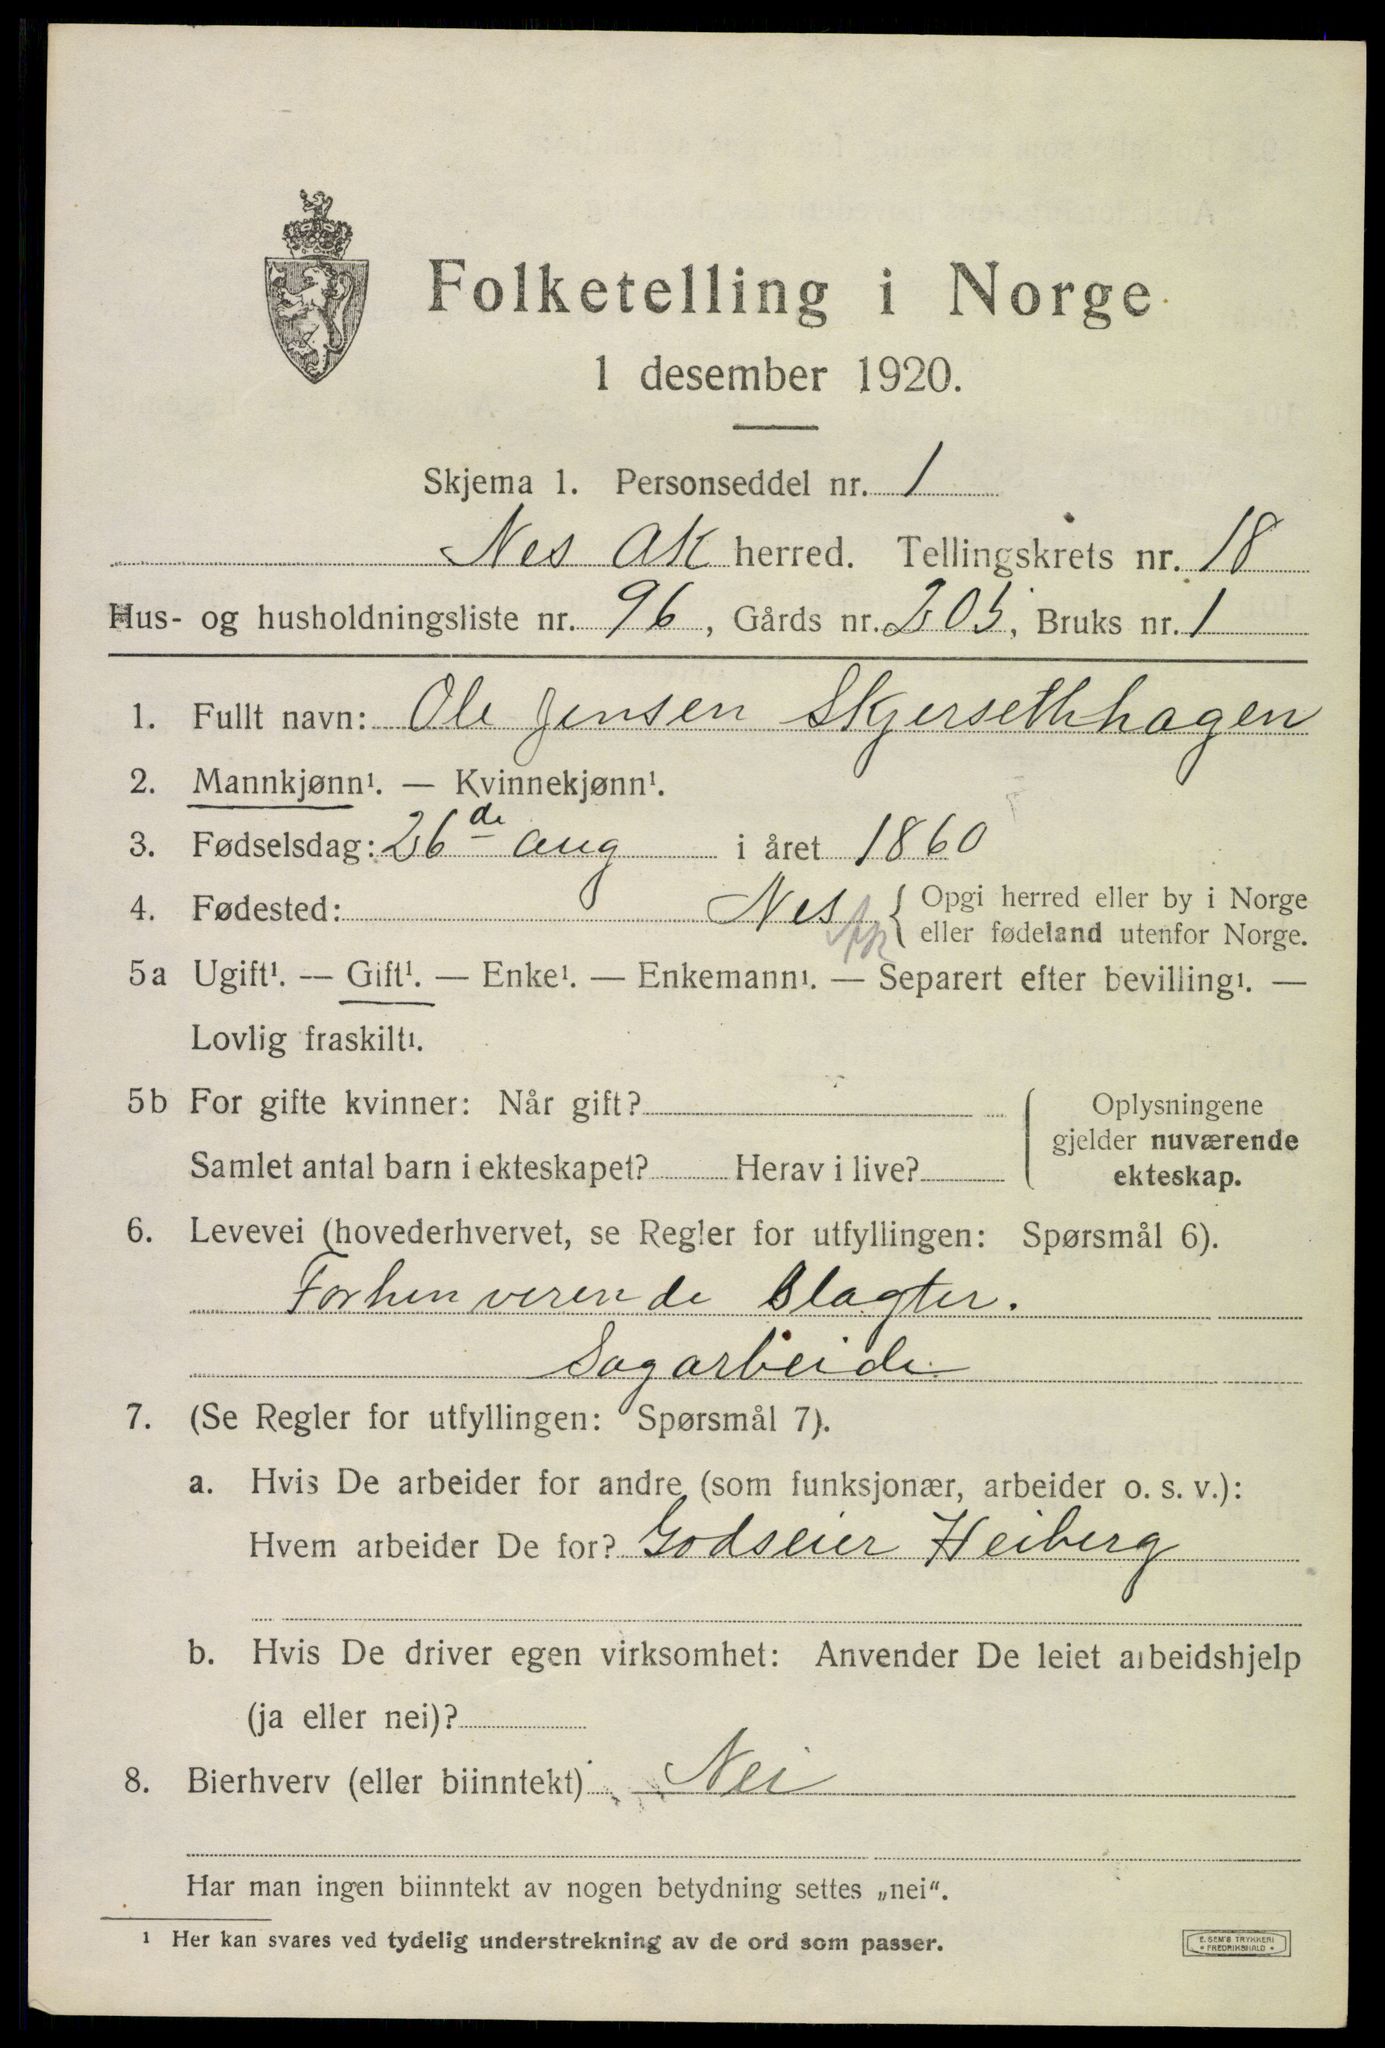 Folketelling i Norge
1 desember 1920.
Skjema 1. Personseddel nr. 1
Nes AK herred. Tellingskrets nr. 18
Hus- og husholdningsliste nr. 96, Gårds nr. 205, Bruks nr. 1
1. Fullt navn: Ole Jensen Skjersethhagen
2. Mannkjønn¹. — Kvinnekjønn¹.
3. Fødselsdag: 26de aug i året 1860
4. Fødested: Nes AK { Opgi herred eller by i Norge
eller fødeland utenfor Norge.
5a Ugift¹. — Gift¹. — Enke¹. — Enkemann¹. — Separert efter bevilling¹. —
Lovlig fraskilt¹.
5b For gifte kvinner: Når gift? Oplysningene
gjelder nuværende
Samlet antal barn i ekteskapet? Herav i live? ekteskap.
6. Levevei (hovederhvervet, se Regler for utfyllingen: Spørsmål 6).
Forhenverende Slagter.
Sagarbeide.
7. (Se Regler for utfyllingen: Spørsmål 7).
a. Hvis De arbeider for andre (som funksjonær, arbeider o. s. v.):
Hvem arbeider De for? Godseier Heiberg
b. Hvis De driver egen virksomhet: Anvender De leiet arbeidshjelp
(ja eller nei)?
8. Bierhverv (eller biinntekt) Nei
Har man ingen biinntekt av nogen betydning settes „nei“.
¹ Her kan svares ved tydelig understrekning av de ord som passer.
E. SEM'S TRYKKERI
* FREDRIKSHALD *